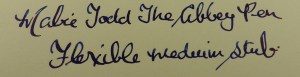 Mabie Todd The Abbey Pen
Flexible medium stub